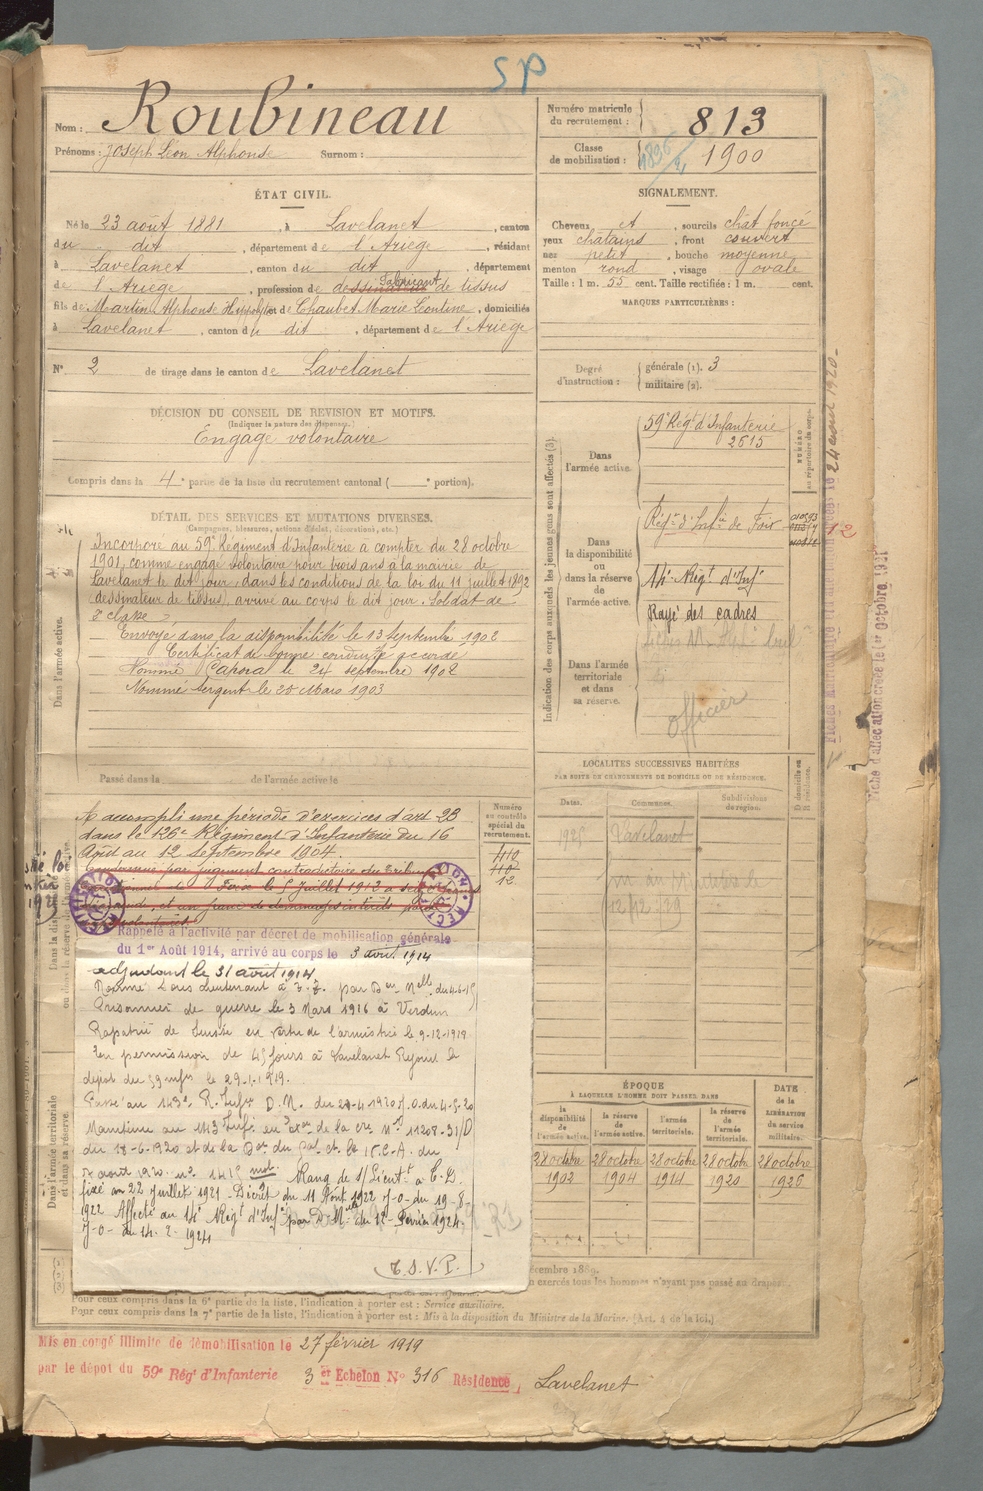 SP
Nom : Roubineau
Prénoms : Joseph Léon Alphonse Surnom :
Numéro matricule du recrutement : 813
Classe de mobilisation : 1900
ÉTAT CIVIL.
Né le 23 août 1881, à Lavelanet, canton
du dit, département de l'Ariège, résidant
à Lavelanet, canton du dit, département
de l'Ariège, profession de dessinateur fabricant de tissus
fils de Martin Alphonse Hippolyte et de Chaubet Marie Léontine, domiciliés
à Lavelanet, canton du dit, département de l'Ariège
N° 2 de tirage dans le canton de Lavelanet
SIGNALEMENT.
Cheveux et, sourcils chat foncé
yeux chatains, front couvert
nez petit, bouche moyenne
menton rond, visage ovale
Taille : 1 m. 55 cent. Taille rectifiée : 1 m. cent.
MARQUES PARTICULIÈRES :
Degré d'instruction : générale (1). 3
militaire (2).
DÉCISION DU CONSEIL DE REVISION ET MOTIFS.
(Indiquer la nature des dispenses.)
Engagé volontaire
Compris dans la 4e partie de la liste du recrutement cantonal ( e portion).
DÉTAIL DES SERVICES ET MUTATIONS DIVERSES.
(Campagnes, blessures, actions d'éclat, décorations, etc.)
Dans l'armée active.
Incorporé au 59e Régiment d'Infanterie à compter du 28 octobre
1901, comme engagé volontaire pour trois ans à la mairie de
Lavelanet le dit jour, dans les conditions de la loi du 11 juillet 1892
(dessinateur de tissus), arrivé au corps le dit jour. Soldat de
2e classe
Envoyé dans la disponibilité le 13 Septembre 1902
Certificat de bonne conduite accordé
Nommé Caporal le 24 septembre 1902
Nommé Sergent le 28 Mars 1903
Passé dans la de l'armée active le
A accompli une période d'exercices d'art 23
dans le 126e Régiment d'Infanterie du 16
Août au 12 Septembre 1904
Rappelé à l'activité par décret de mobilisation générale
du 1er Août 1914, arrivé au corps le 3 août 1914
adjudant le 31 août 1914
Nommé Sous lieutenant à T.T. par Don Mlle du 4-6-15
Prisonnier de guerre le 3 Mars 1916 à Verdun
Rapatrié de Suisse en vertu de l'armistice le 9-12-1919
En permission de 45 jours à Lavelanet Rejoint le
dépôt du 59 infie le 29-1-1919.
Passé au 143e R. Infie D.M. du 28-4-1920 J.O. du 4-5-20
Maintenu au 143 Infie en Exon de la cre No 11208-31/D
du 18-6-1920 et de la
Rang de s/Lieutt à T.D.
fixé au 22 Juillet 1921 - Décret du 11 Août 1922 J-O- du 19-8-
1922 Affecté au 14e Régt d'Infie par D. Mlle du 12 Février 1924.
J-O- du 14.2.1924
T.S.V.P.
Numéro au contrôle spécial du recrutement.
410
12
Indication des corps auxquels les jeunes gens sont affectés (3).
Dans l'armée active.
59e Régt d'Infanterie
2615
Dans la disponibilité ou dans la réserve de l'armée active.
Régt d'Infie de Foix
14e Régt d'Inf
Rayé des cadres
Dans l'armée territoriale et dans sa réserve.
officier
12
24 août 1920
Fiche d'affectation créée le 1er Octobre 1921
LOCALITÉS SUCCESSIVES HABITÉES
PAR SUITE DE CHANGEMENTS DE DOMICILE OU DE RÉSIDENCE.
Dates. Communes. Subdivisions de région. D domicile ou R résidence.
Lavelanet
ÉPOQUE
À LAQUELLE L'HOMME DOIT PASSER DANS
la disponibilité de l'armée active. la réserve de l'armée active. l'armée territoriale. la réserve de l'armée territoriale. DATE de la LIBÉRATION du service militaire.
28 octobre 1902 28 octobre 1904 28 octobre 1914 28 octobre 1920 28 octobre 1926
Pour ceux compris dans la 6e partie de la liste, l'indication à porter est : Service auxiliaire.
Pour ceux compris dans la 7e partie de la liste, l'indication à porter est : Mis à la disposition du Ministre de la Marine. (Art. 4 de la loi.)
Mis en congé illimité de démobilisation le 27 février 1919
par le dépôt du 59e Rég' d'Infanterie 3e Echelon N° 316 Résidence, Lavelanet